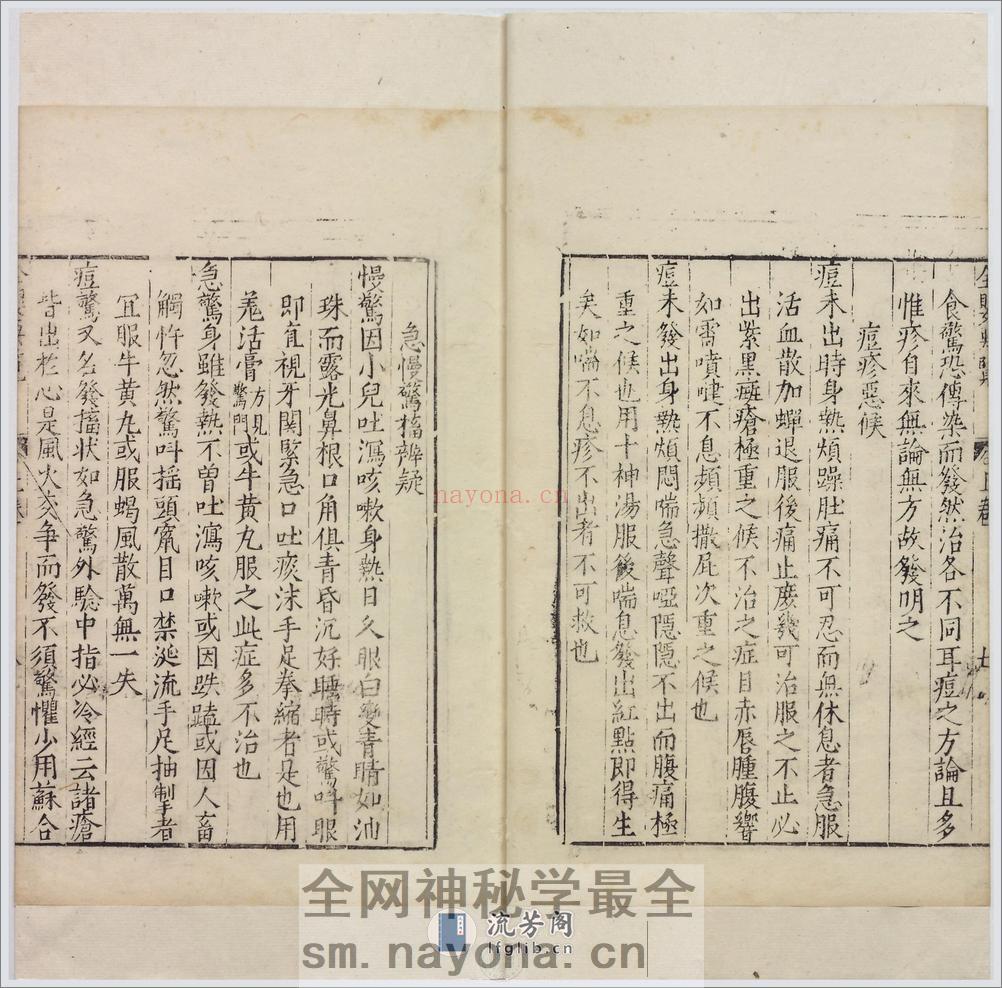 食驚恐傳染而發然治各不同耳痘之方論且多
惟疹自來無論無方故發明之
痘疹惡候
痘未出時身熱煩躁肚痛不可忍而無休息者急服
活血散加蟬退服後痛止庶幾可治服之不止必
出紫黑斑瘡極重之候不治之症目赤唇腫腹響
如雷噴嚏不息頻頻撒屁次重之候也
痘未發出身熱煩悶喘急聲啞隱隱不出而腹痛極
重之候也用十神湯服後喘息發出紅點即得生
矣如喘不息疹不出者不可救也
急慢驚搐辨疑
慢驚因小兒吐瀉咳嗽身熱日久眼白變青睛如油
珠而露光鼻根口角俱青昏沉好睡時或驚呌眼
即直視牙關緊急口吐痰沫手足拳縮者是也用
羗活膏方見驚門或牛黄丸服之此症多不治也
急驚身雖發熱不曾吐瀉咳嗽或因跌磕或因人畜
觸忤忽然驚呌摇頭竄目口禁涎流手足抽掣者
冝服牛黄丸或服蝎風散萬無一失
痘驚又名發搐状如急驚外驗中指必冷經云諸瘡
皆出於心是風火交争而發不須驚懼少用蘇合
nayona.cn
全网神秘学最全
流芳阁
lfglib.cn
sm.nayona.cn